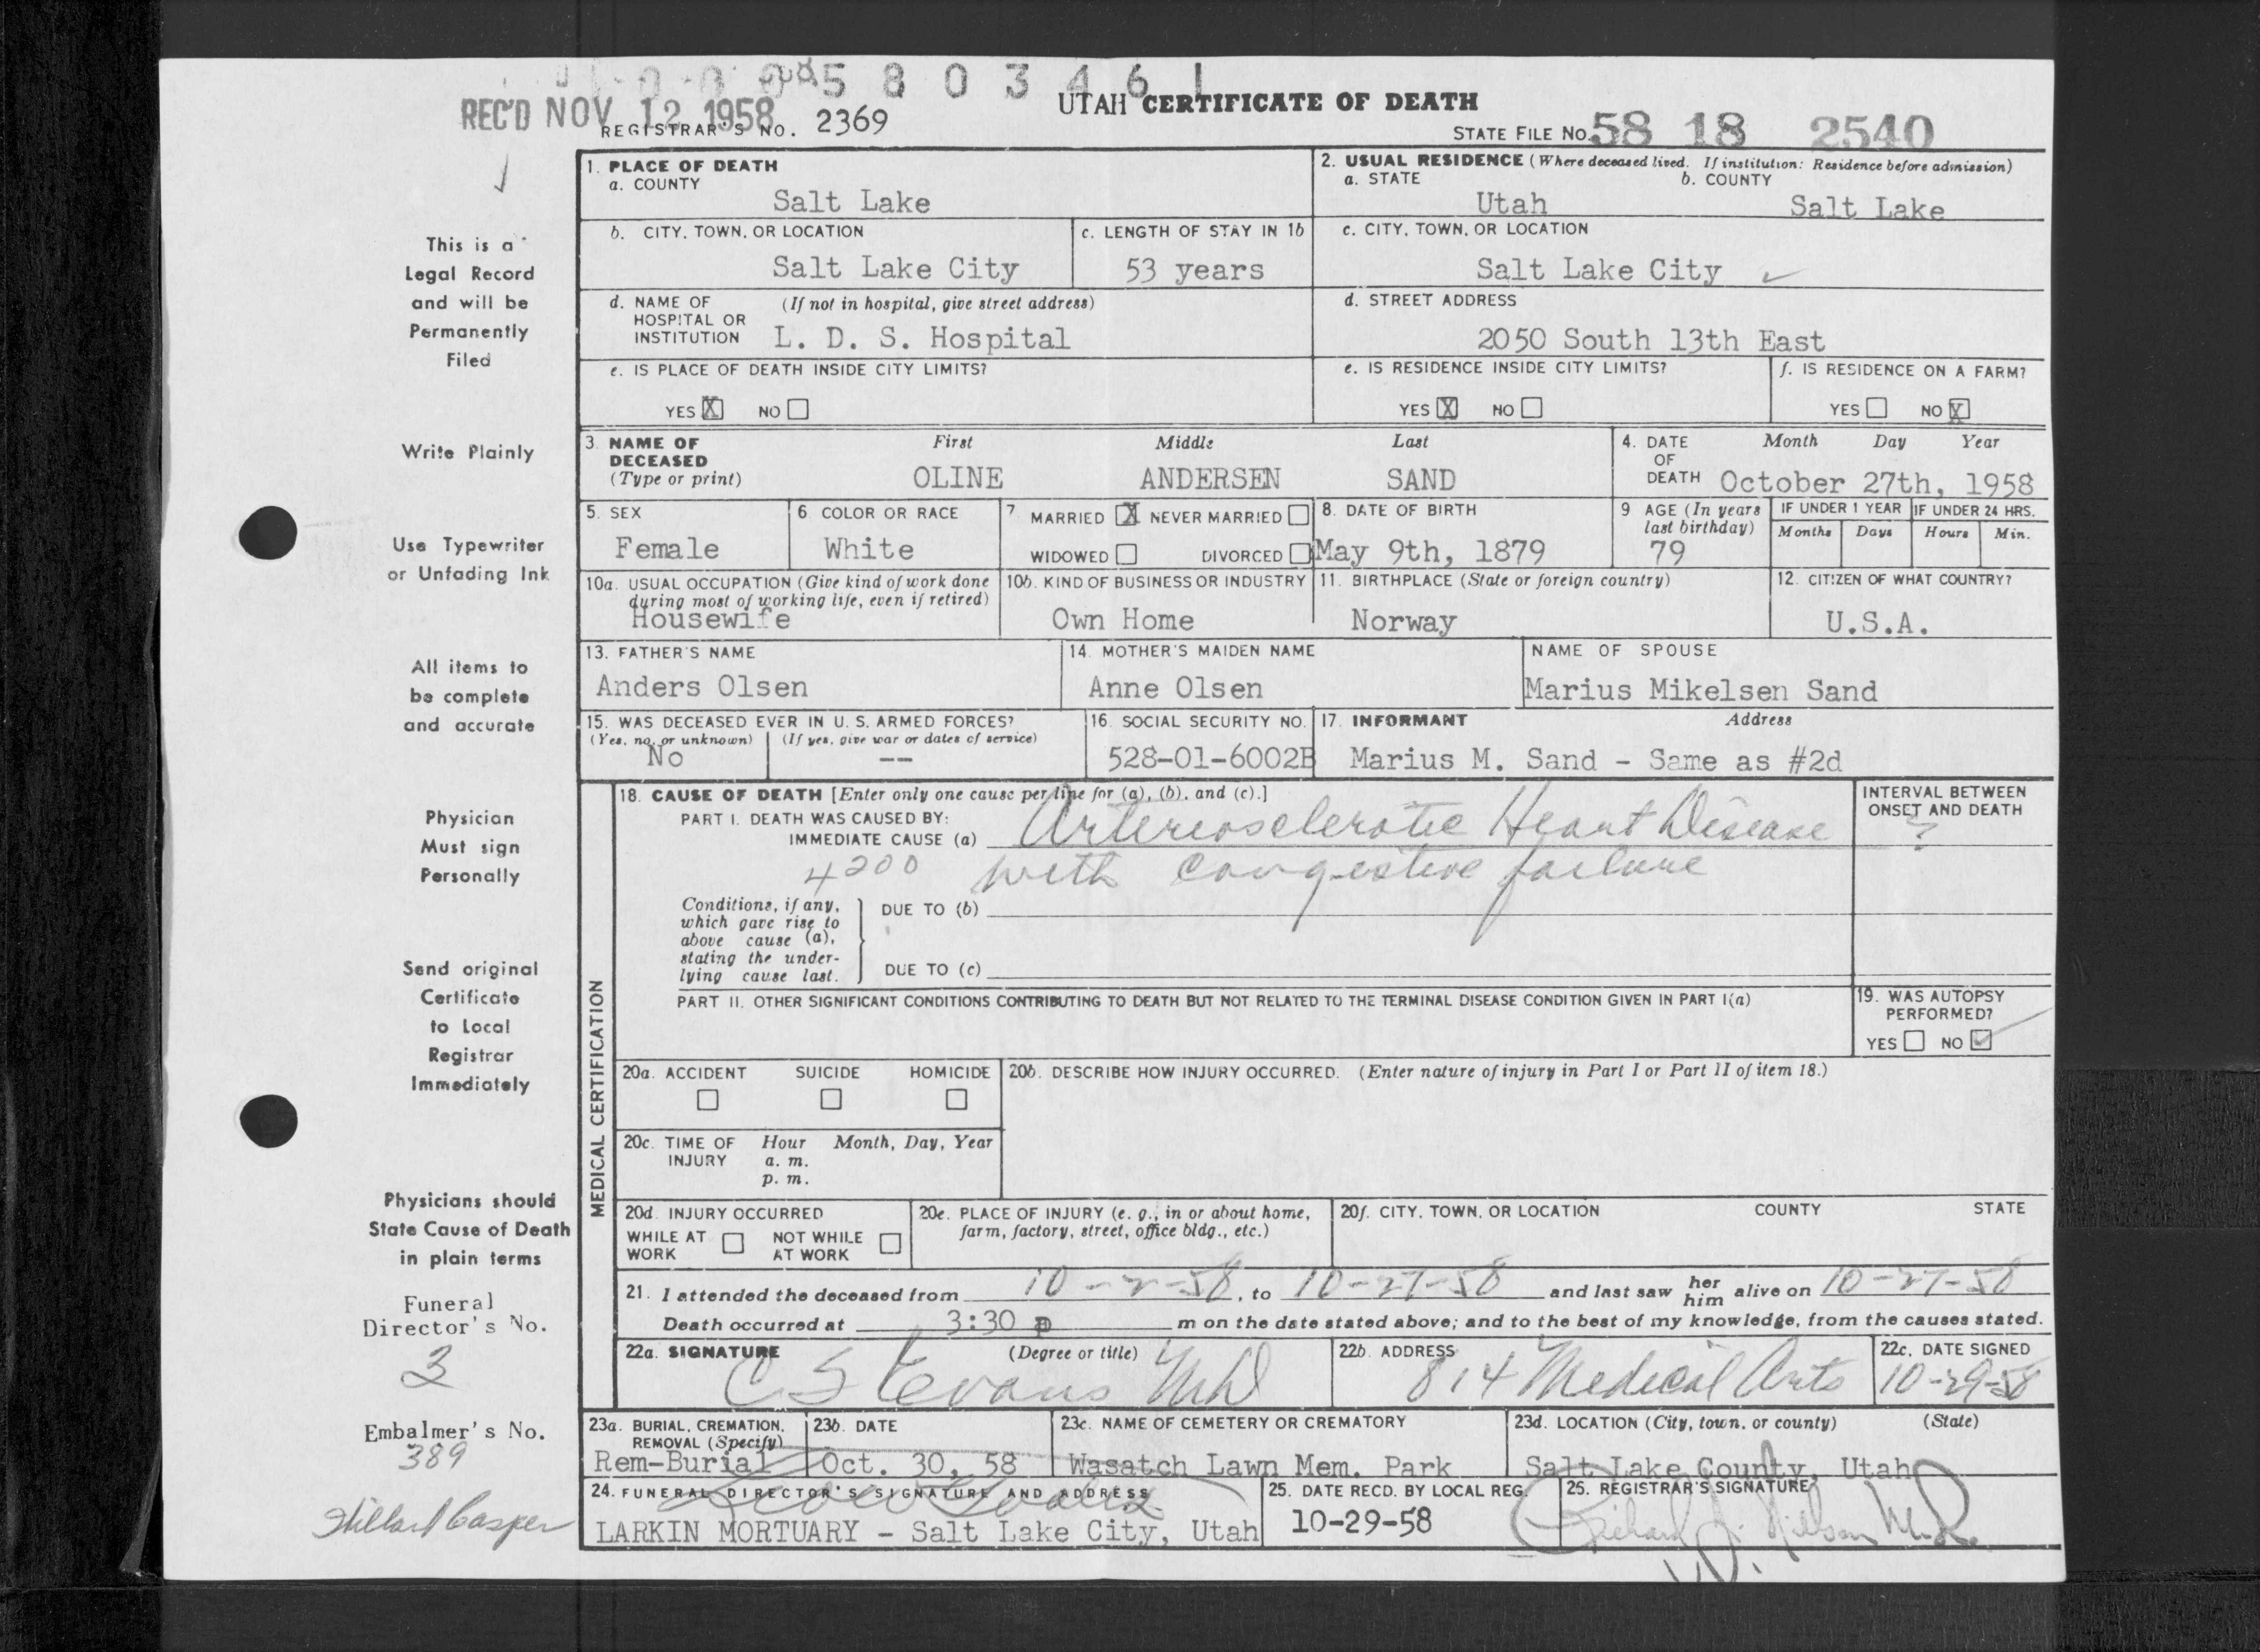 580346 1
REC'D NOV 12 1958
UTAH CERTIFICATE OF DEATH
REGISTRAR'S NO. 2369
STATE FILE NO. 58 18 2540
This is a
Legal Record
and will be
Permanently
Filed
Write Plainly
Use Typewriter
or Unfading Ink
All items to
be complete
and accurate
Physician
Must sign
Personally
Send original
Certificate
to Local
Registrar
Immediately
Physicians should
State Cause of Death
in plain terms
Funeral
Director's No.
3
Embalmer's No.
389
1. PLACE OF DEATH
a. COUNTY
Salt Lake
2. USUAL RESIDENCE (Where deceased lived. If institution: Residence before admission)
a. STATE b. COUNTY
Utah Salt Lake
b. CITY, TOWN, OR LOCATION
Salt Lake City
c. LENGTH OF STAY IN 1b
53 years
c. CITY, TOWN, OR LOCATION
Salt Lake City
d. NAME OF (If not in hospital, give street address)
HOSPITAL OR
INSTITUTION L. D. S. Hospital
d. STREET ADDRESS
2050 South 13th East
e. IS PLACE OF DEATH INSIDE CITY LIMITS?
YES X NO
e. IS RESIDENCE INSIDE CITY LIMITS?
YES X NO
f. IS RESIDENCE ON A FARM?
YES NO X
3. NAME OF First Middle Last
DECEASED
(Type or print) OLINE ANDERSEN SAND
4. DATE Month Day Year
OF
DEATH October 27th, 1958
5. SEX
Female
6 COLOR OR RACE
White
7. MARRIED X NEVER MARRIED
WIDOWED DIVORCED
8. DATE OF BIRTH
May 9th, 1879
9 AGE (In years
last birthday)
79
IF UNDER 1 YEAR IF UNDER 24 HRS.
Months Days Hours Min.
10a. USUAL OCCUPATION (Give kind of work done
during most of working life, even if retired)
Housewife
10b. KIND OF BUSINESS OR INDUSTRY
Own Home
11. BIRTHPLACE (State or foreign country)
Norway
12. CITIZEN OF WHAT COUNTRY?
U.S.A.
13. FATHER'S NAME
Anders Olsen
14. MOTHER'S MAIDEN NAME
Anne Olsen
NAME OF SPOUSE
Marius Mikelsen Sand
15. WAS DECEASED EVER IN U. S. ARMED FORCES?
(Yes, no, or unknown) (If yes, give war or dates of service)
No --
16. SOCIAL SECURITY NO.
528-01-6002B
17. INFORMANT Address
Marius M. Sand - Same as #2d
MEDICAL CERTIFICATION
18. CAUSE OF DEATH [Enter only one cause per line for (a), (b), and (c).]
PART I. DEATH WAS CAUSED BY:
IMMEDIATE CAUSE (a) Arteriosclerotic Heart Disease
4200 with congestive failure
INTERVAL BETWEEN
ONSET AND DEATH
?
Conditions, if any,
which gave rise to
above cause (a),
stating the under-
lying cause last.
DUE TO (b)
DUE TO (c)
PART II. OTHER SIGNIFICANT CONDITIONS CONTRIBUTING TO DEATH BUT NOT RELATED TO THE TERMINAL DISEASE CONDITION GIVEN IN PART I(a)
19. WAS AUTOPSY
PERFORMED?
YES NO ✓
20a. ACCIDENT SUICIDE HOMICIDE
20b. DESCRIBE HOW INJURY OCCURRED. (Enter nature of injury in Part I or Part II of item 18.)
20c. TIME OF Hour Month, Day, Year
INJURY a. m.
p. m.
20d. INJURY OCCURRED
WHILE AT NOT WHILE
WORK AT WORK
20e. PLACE OF INJURY (e. g., in or about home,
farm, factory, street, office bldg., etc.)
20f. CITY, TOWN, OR LOCATION COUNTY STATE
21. I attended the deceased from 10-2-58, to 10-27-58 and last saw her him alive on 10-27-58
Death occurred at 3:30 p m on the date stated above; and to the best of my knowledge, from the causes stated.
22a. SIGNATURE (Degree or title)
C S Evans MD
22b. ADDRESS
814 Medical Arts
22c. DATE SIGNED
10-29-58
23a. BURIAL, CREMATION,
REMOVAL (Specify)
Rem-Burial
23b. DATE
Oct. 30, 58
23c. NAME OF CEMETERY OR CREMATORY
Wasatch Lawn Mem. Park
23d. LOCATION (City, town, or county) (State)
Salt Lake County, Utah
24. FUNERAL DIRECTOR'S SIGNATURE AND ADDRESS
LARKIN MORTUARY - Salt Lake City, Utah
25. DATE RECD. BY LOCAL REG.
10-29-58
26. REGISTRAR'S SIGNATURE